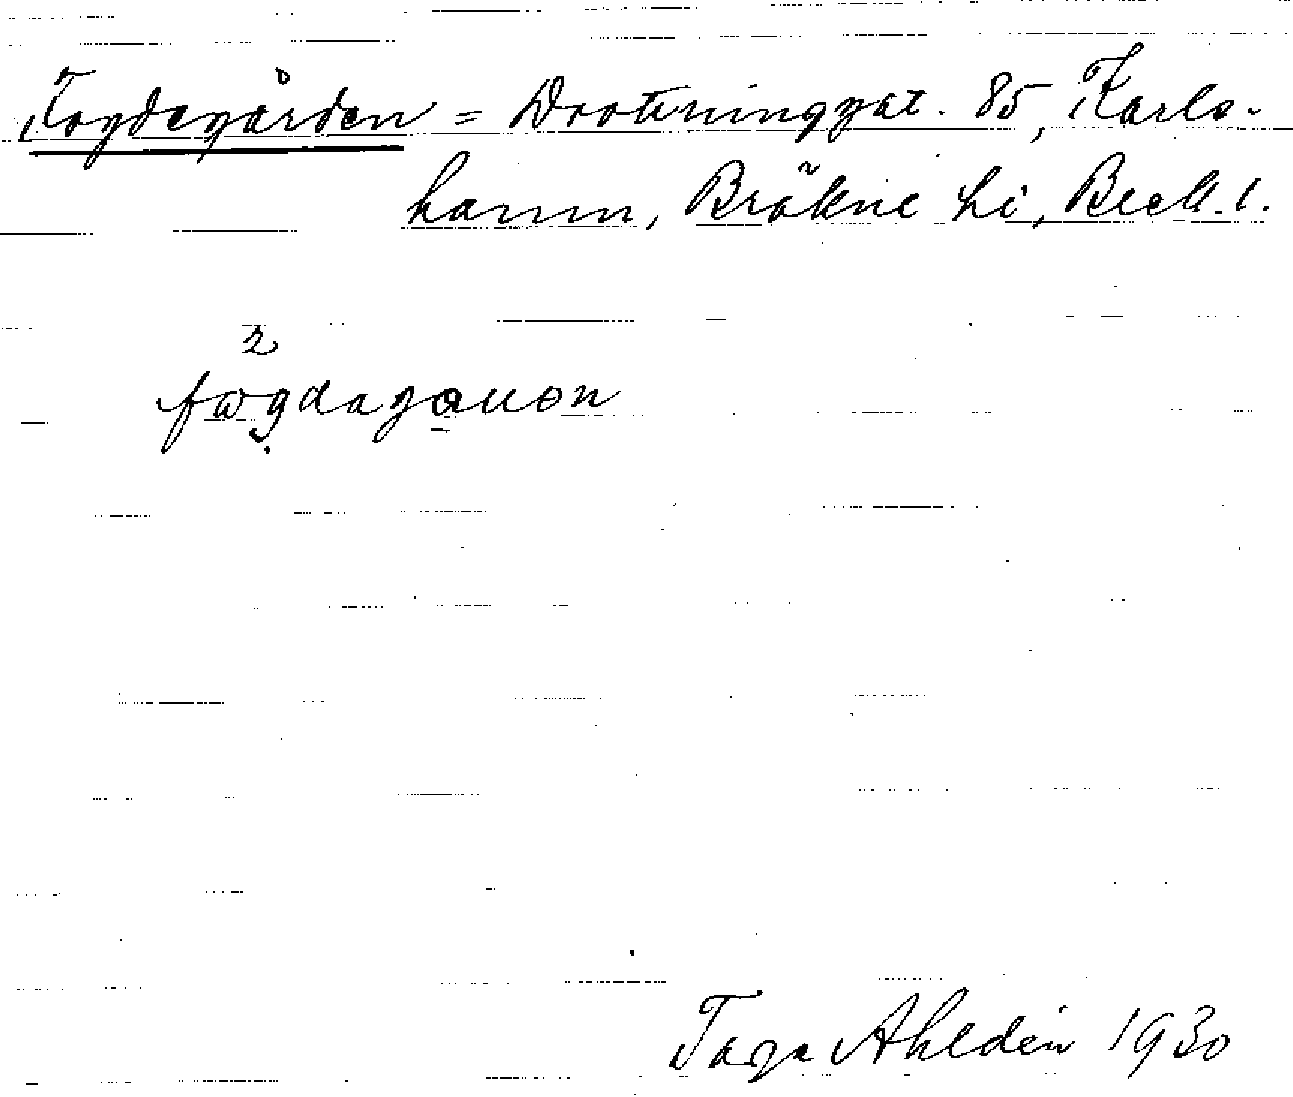 Fogdegården = Drottninggat. 85, Karls-
hamn, Bräkne hd, Blek. l.
2
fωgdagɑuən
Tage Ahldén 1930